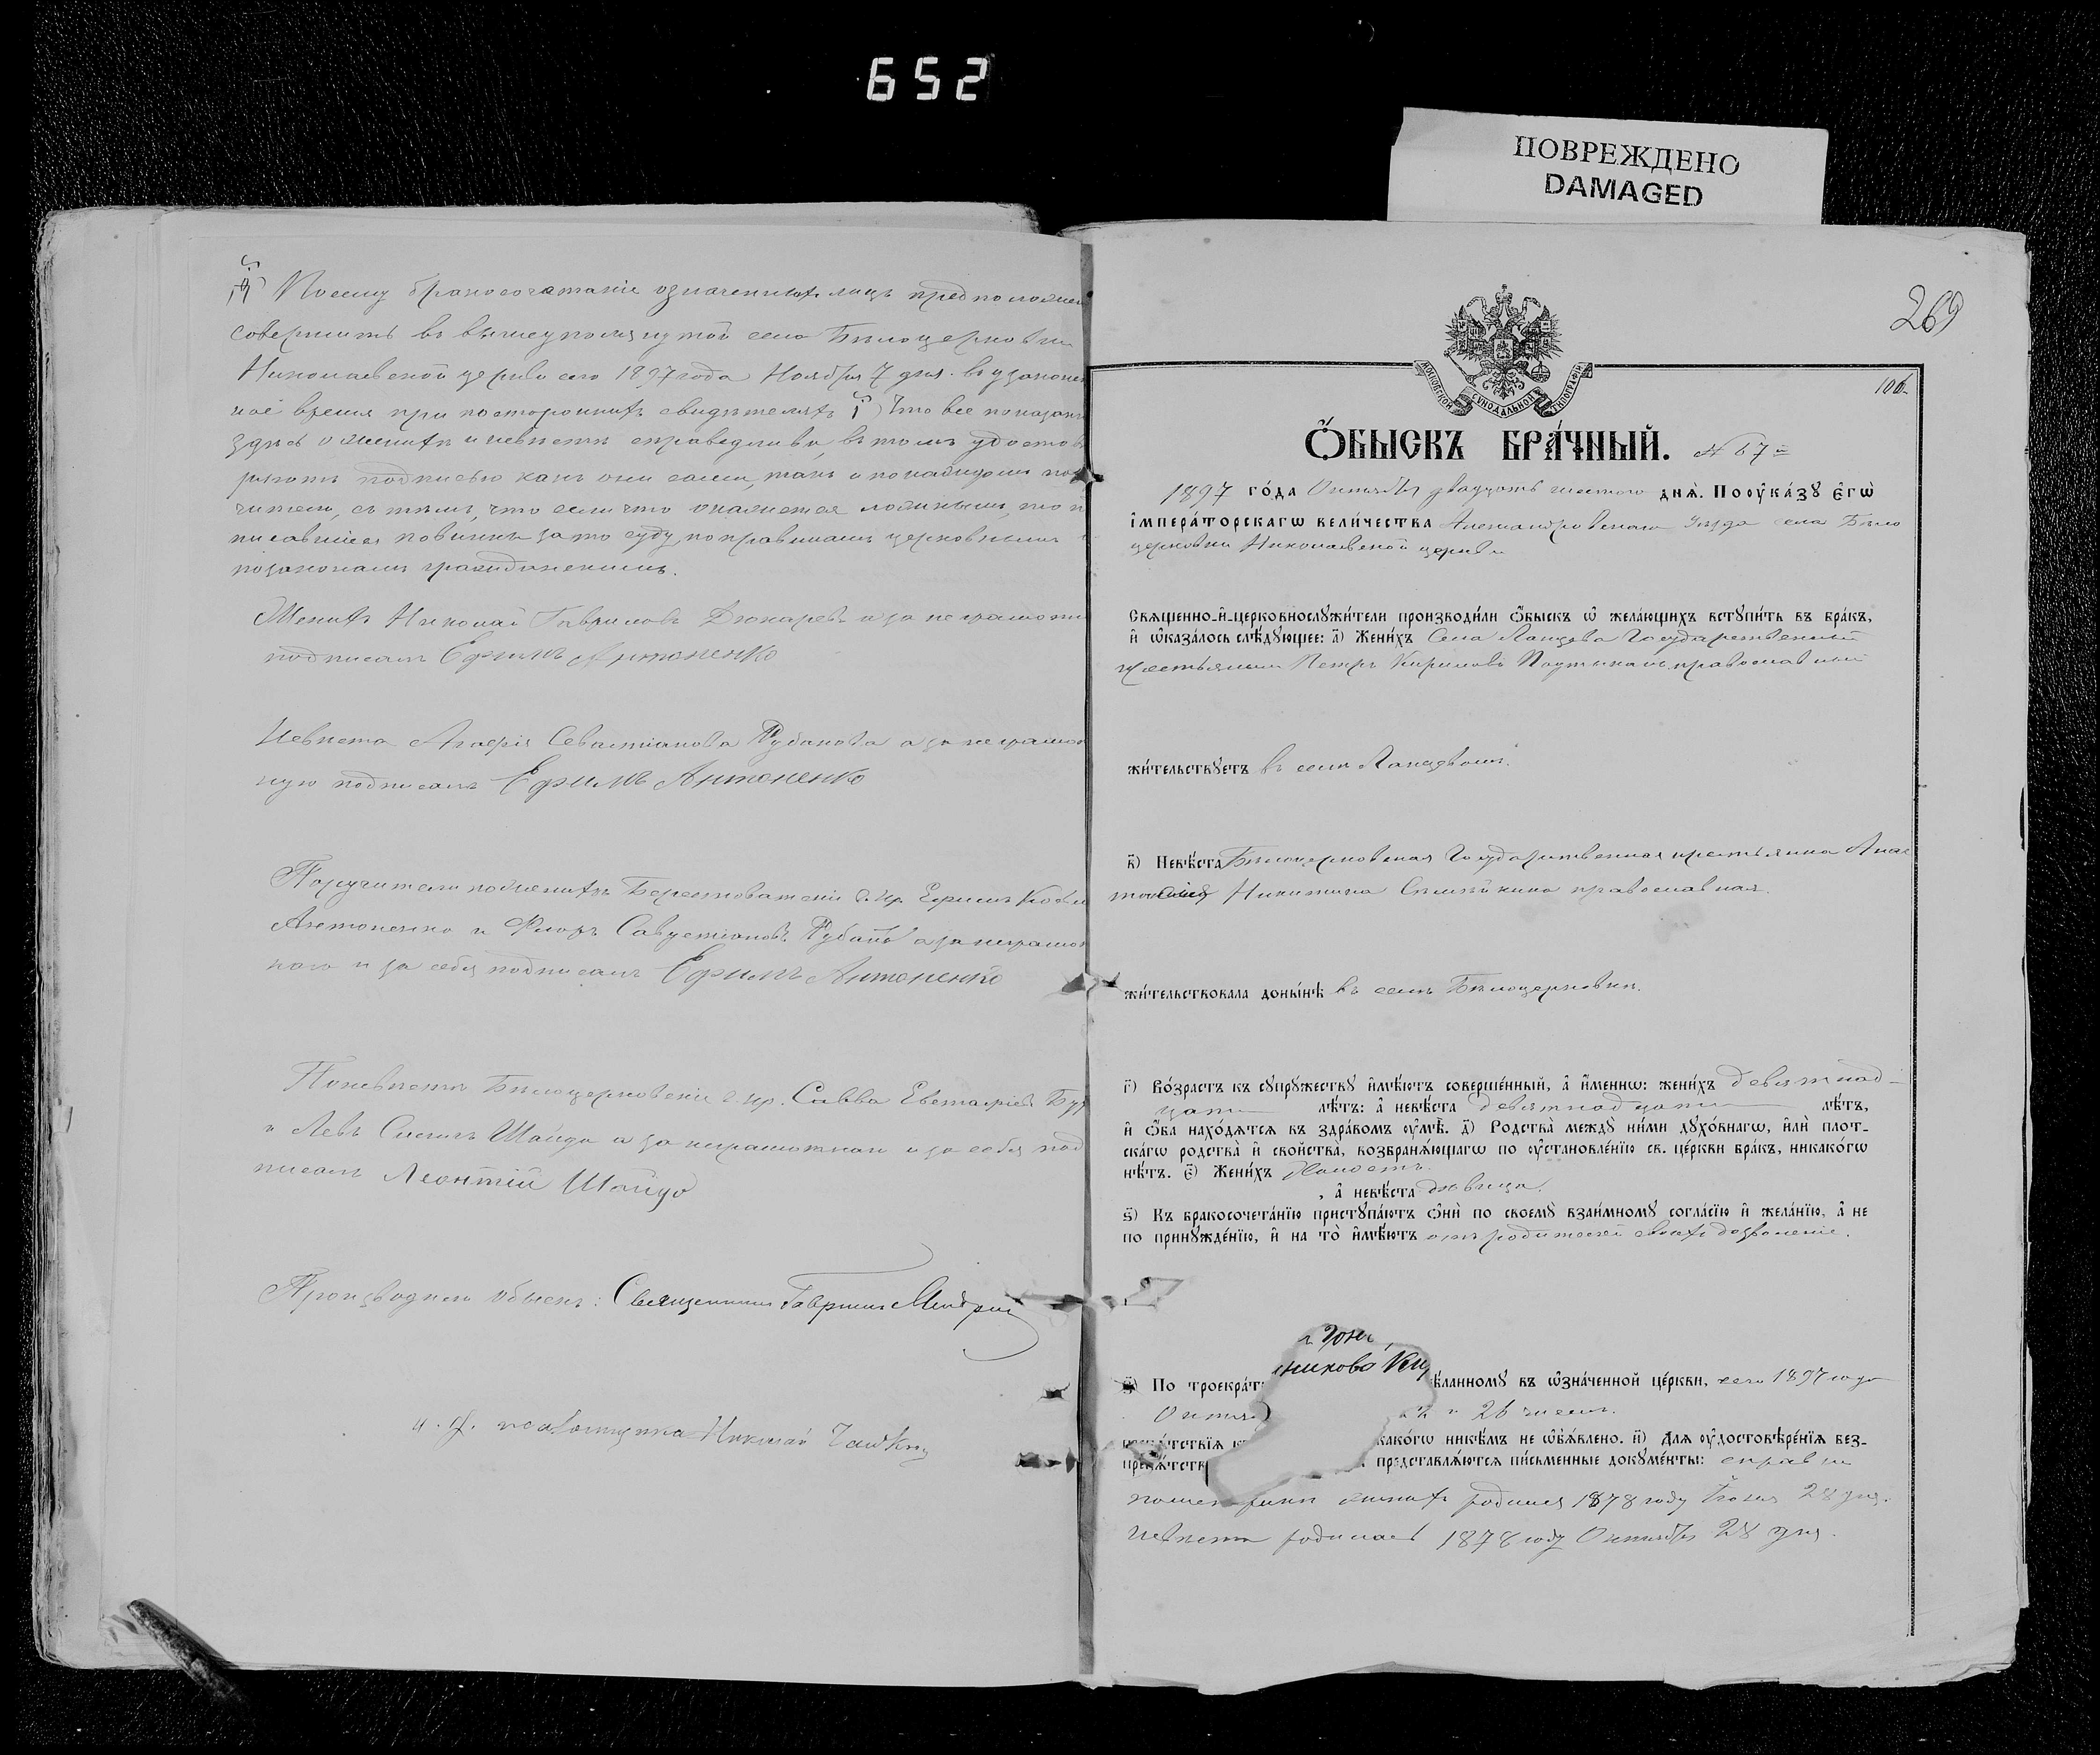 652
ПОВРЕЖДЕНО
DAMAGED
Посему бракосочетаніе означенныхъ лицъ предположен
совершить въ вышеупомянутой села Бѣлоцерковки
Николаевской церкви сего 1897 года Ноября 7 дня въ узаконен
ное время при постороннихъ свидѣтеляхъ і) Что все показан
здѣсь о женихѣ и невѣстѣ справедливо, въ томъ удостовѣ
ряютъ подписью какъ они сами, такъ и по каждомъ по
чители, съ тѣмъ, что если что окажется ложнымъ, то п
писавшіеся повинны за то суду по правиламъ церковнымъ
по законамъ гражданскимъ.
Женихъ Николай Гавриловъ Дюкаревъ а за неграмотн
подписалъ Ефимъ Антоненко
Невѣста Агафія Севастіанова Рубанова а за неграмот
ную подписалъ Ефимъ Антоненко
Поручители по женихѣ Берестоватскіе г. кр. Ефимъ
Антоненко и Флоръ Савустіановъ Рубанъ а за неграмот
наго и за себя подписалъ Ефимъ Антоненко
По невѣстѣ Бѣлоцерковскіе г. кр. Савва Евстафіевъ
и Левъ Шайда а за неграмотнаго и за себя под
писалъ Леонтій Шайда
Производили обыскъ: Священникъ Гавріилъ
и. д. псаломщика Николай
269
106
МОСКОВСКОЙ СѴНОДАЛЬНОЙ ТИПОГРАФІИ
Ѻ҆БЫСКЪ БРА́ЧНЫЙ. № 67й
1897 го́да Октября двадцать шестого днѧ̀. По ᲂу҆ка́зꙋ є҆гѡ̀
і҆мпера́торскагѡ вели́чества Александровскаго Уѣзда села Бѣло
церковки Николаевской церкви
Свѧще́нно-и҆-церковнослꙋжи́тели производи́ли ѻ҆́быскъ ѡ҆ жела́ющихъ встꙋпи́ть въ бра́къ,
и҆ ѡ҆каза́лось слѣ́дꙋющее: а҃) Жени́хъ Села Ланцева Государственный
крестьянинъ Петръ Кириловъ православный
жи́тельствꙋетъ въ селѣ Ланцевомъ.
в҃) Невѣ́ста Бѣлоцерковская Государственная крестьянка Анас
тасія Никитина православная.
жи́тельствовала доны́нѣ въ селѣ Бѣлоцерковкѣ.
г҃) Во́зрастъ къ сꙋпрꙋ́жествꙋ и҆мѣ́ютъ соверше́нный, а҆ и҆́меннѡ: жени́хъ девятнад-
цати лѣ́тъ: а҆ невѣ́ста девятнадцати лѣ́тъ,
и҆ ѻ҆́ба нахо́дѧтсѧ въ здра́вомъ ᲂу҆мѣ̀. д҃) Родства̀ междꙋ̀ ни́ми дꙋхо́внагѡ, и҆лѝ пло́т-
скагѡ родства̀ и҆ сво́йства, возбранѧ́ющагѡ по ᲂу҆становле́нїю св. це́ркви бра́къ, никако́гѡ
нѣ́тъ. є҃) Жени́хъ холостъ.
, а҆ невѣ́ста дѣвица.
ѕ҃) Къ бракосочета́нїю пристꙋпа́ютъ ѻ҆нѝ по своемꙋ̀ взаи́мномꙋ согла́сїю и҆ жела́нїю, а҆ не
по принꙋжде́нїю, и҆ на то̀ и҆мѣ́ютъ отъ родителей своихъ дозволеніе.
никова
з҃) По троекра́т ѣ́ланномꙋ въ ѡ҆зна́ченной це́ркви, сего 1897 года
Октяб и 26 чиселъ.
препѧ́тствїѧ к како́гѡ никѣ́мъ не ѡ҆б̾ѧ́влено. и҃) Длѧ ᲂу҆достовѣ́ренїѧ без-
препѧ́тств представлѧ́ютсѧ пи́сьменные докꙋме́нты: справки
женихъ родился 1878 году 28 дня.
невѣста родилась 1878 году Октября 28 дня.